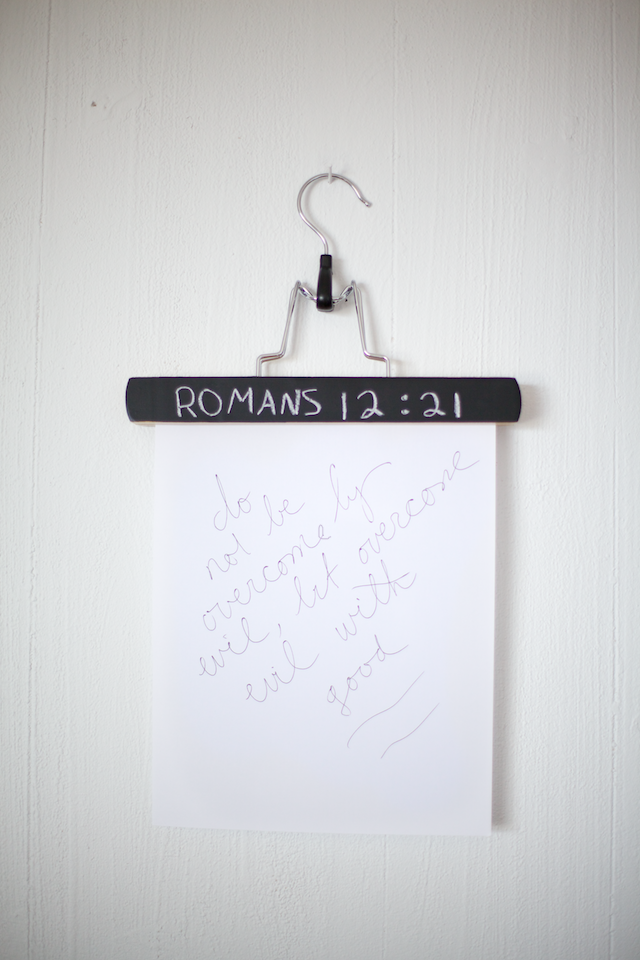 ROMANS 12:21
do
not be
overcome by
evil, but overcome
evil with
good